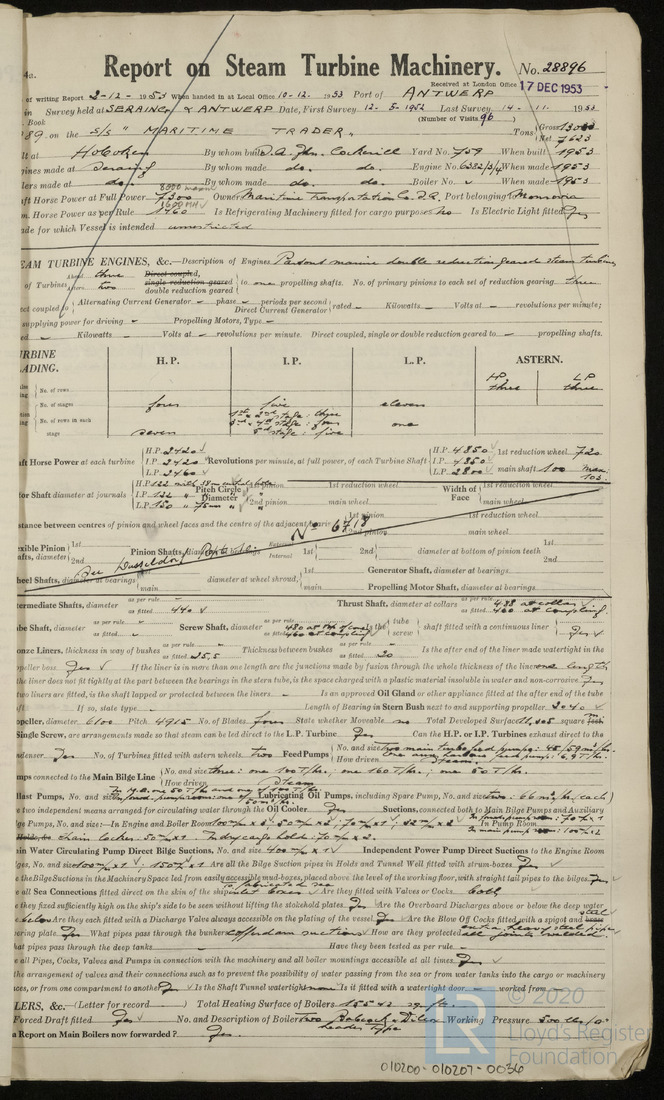 4a.
Report on Steam Turbine Machinery. No. 28896
Received at London Office 17 DEC 1953
of writing Report 2-12-1953 When handed in at Local Office 10-12-1953 Port of ANTWERP
in Survey held at SERAING & ANTWERP Date, First Survey 12-5-1952 Last Survey 14-11-1953
Book (Number of Visits 96)
89. on the S/S "MARITIME TRADER" Tons Gross Net 7623
lt at Hoboken By whom built Yard No. 759 When built 1953
ines made at Seraing By whom made do. do. Engine No. When made 1953
lers made at do. By whom made do. do. Boiler No. When made 1953
ft Horse Power at Full Power 7300 8000 maxm Owner Maritime Transportation Co. Port belonging Monrovia
m. Horse Power as per Rule 1460 Is Refrigerating Machinery fitted for cargo purposes No Is Electric Light fitted Yes
ade for which Vessel is intended unrestricted
EAM TURBINE ENGINES, &c.—Description of Engines Parsons marine double reduction geared steam turbines
of Turbines ahead three astern two Direct coupled, single reduction geared double reduction geared to one propelling shafts. No. of primary pinions to each set of reduction gearing three
ect coupled to Alternating Current Generator – phase – periods per second Direct Current Generator rated – Kilowatts – Volts at – revolutions per minute;
supplying power for driving – Propelling Motors, Type –
ed – Kilowatts – Volts at – revolutions per minute. Direct coupled, single or double reduction geared to – propelling shafts.
RBINE ADING. H. P. I. P. L. P. ASTERN.
HP LP
No. of rows three three
No. of stages four five eleven
No. of rows in each stage seven 1st & 2nd stage: three 3rd & 4th stage: four 5th stage: five one
ft Horse Power at each turbine H.P. 2420 I.P. 2420 L.P. 2460 Revolutions per minute, at full power, of each Turbine Shaft H.P. 4850 I.P. 4850 L.P. 2800 1st reduction wheel 720 main shaft 100 max. 103
or Shaft diameter at journals H.P. I.P. L.P. 150 Pitch Circle Diameter 1st pinion 2nd pinion 1st reduction wheel main wheel Width of Face 1st reduction wheel main wheel
stance between centres of pinion and wheel faces and the centre of the adjacent bearings 1st pinion 2nd pinion 1st reduction wheel main wheel
exible Pinion afts, diameter 1st 2nd Pinion Shafts, diameter at bearings External Internal 1st 2nd diameter at bottom of pinion teeth 1st 2nd
See Dusseldorf Rpt No 6718
heel Shafts, diameter at bearings 1st main diameter at wheel shroud, 1st main Generator Shaft, diameter at bearings Propelling Motor Shaft, diameter at bearings
termediate Shafts, diameter as per rule – as fitted 440 Thrust Shaft, diameter at collars as per rule as fitted 438 at collar 460 at coupling
ube Shaft, diameter as per rule – as fitted – Screw Shaft, diameter as per rule as fitted 460 at coupling Is the tube screw shaft fitted with a continuous liner Yes
onze Liners, thickness in way of bushes as per rule – as fitted 25,5 Thickness between bushes as per rule – as fitted 20 Is the after end of the liner made watertight in the
peller boss Yes If the liner is in more than one length are the junctions made by fusion through the whole thickness of the liner one length
the liner does not fit tightly at the part between the bearings in the stern tube, is the space charged with a plastic material insoluble in water and non-corrosive Yes
two liners are fitted, is the shaft lapped or protected between the liners – Is an approved Oil Gland or other appliance fitted at the after end of the tube
ft If so, state type – Length of Bearing in Stern Bush next to and supporting propeller 2040
opeller, diameter 6100 Pitch 4915 No. of Blades four State whether Moveable no Total Developed Surface square feet
Single Screw, are arrangements made so that steam can be led direct to the L.P. Turbine Yes Can the H.P. or I.P. Turbines exhaust direct to the
ndenser Yes No. of Turbines fitted with astern wheels two Feed Pumps No. and size two main turbo feed pumps: How driven Steam
mps connected to the Main Bilge Line No. and size three: one 100 T/hr, one 160 T/hr, one 50 T/hr. How driven Steam
llast Pumps, No. and size Lubricating Oil Pumps, including Spare Pump, No. and size two: 66 m³/hr. each
e two independent means arranged for circulating water through the Oil Cooler Yes Suctions, connected both to Main Bilge Pumps and Auxiliary
lge Pumps, No. and size:—In Engine and Boiler Room In Pump Room
Holds, &c. chain locker: 50 m/m x 1 In dry cargo hold: 70 m/m x 2
ain Water Circulating Pump Direct Bilge Suctions, No. and size 400 m/m x 1 Independent Power Pump Direct Suctions to the Engine Room
lges, No. and size 100 m/m x 1 150 m/m x 1 Are all the Bilge Suction pipes in Holds and Tunnel Well fitted with strum-boxes Yes
e the Bilge Suctions in the Machinery Space led from easily accessible mud-boxes, placed above the level of the working floor, with straight tail pipes to the bilges Yes
e all Sea Connections fitted direct on the skin of the ship to fabricated sea inlet boxes Are they fitted with Valves or Cocks both
e they fixed sufficiently high on the ship's side to be seen without lifting the stokehold plates Yes Are the Overboard Discharges above or below the deep water
e below Are they each fitted with a Discharge Valve always accessible on the plating of the vessel Yes Are the Blow Off Cocks fitted with a spigot and steel
vering plate Yes What pipes pass through the bunkers cofferdam suctions How are they protected extra heavy steel pipes all joints welded.
hat pipes pass through the deep tanks – Have they been tested as per rule –
e all Pipes, Cocks, Valves and Pumps in connection with the machinery and all boiler mountings accessible at all times Yes
the arrangement of valves and their connections such as to prevent the possibility of water passing from the sea or from water tanks into the cargo or machinery
ces, or from one compartment to another Yes Is the Shaft Tunnel watertight none Is it fitted with a watertight door – worked from –
LERS, &c.—(Letter for record ) Total Heating Surface of Boilers 15542 sq. ft.
Forced Draft fitted Yes No. and Description of Boilers two Babcock & Wilcox header type Working Pressure 500 lbs/□"
a Report on Main Boilers now forwarded? Yes.
© 2020
LR
Lloyd's Register
Foundation
010200-010207-0036